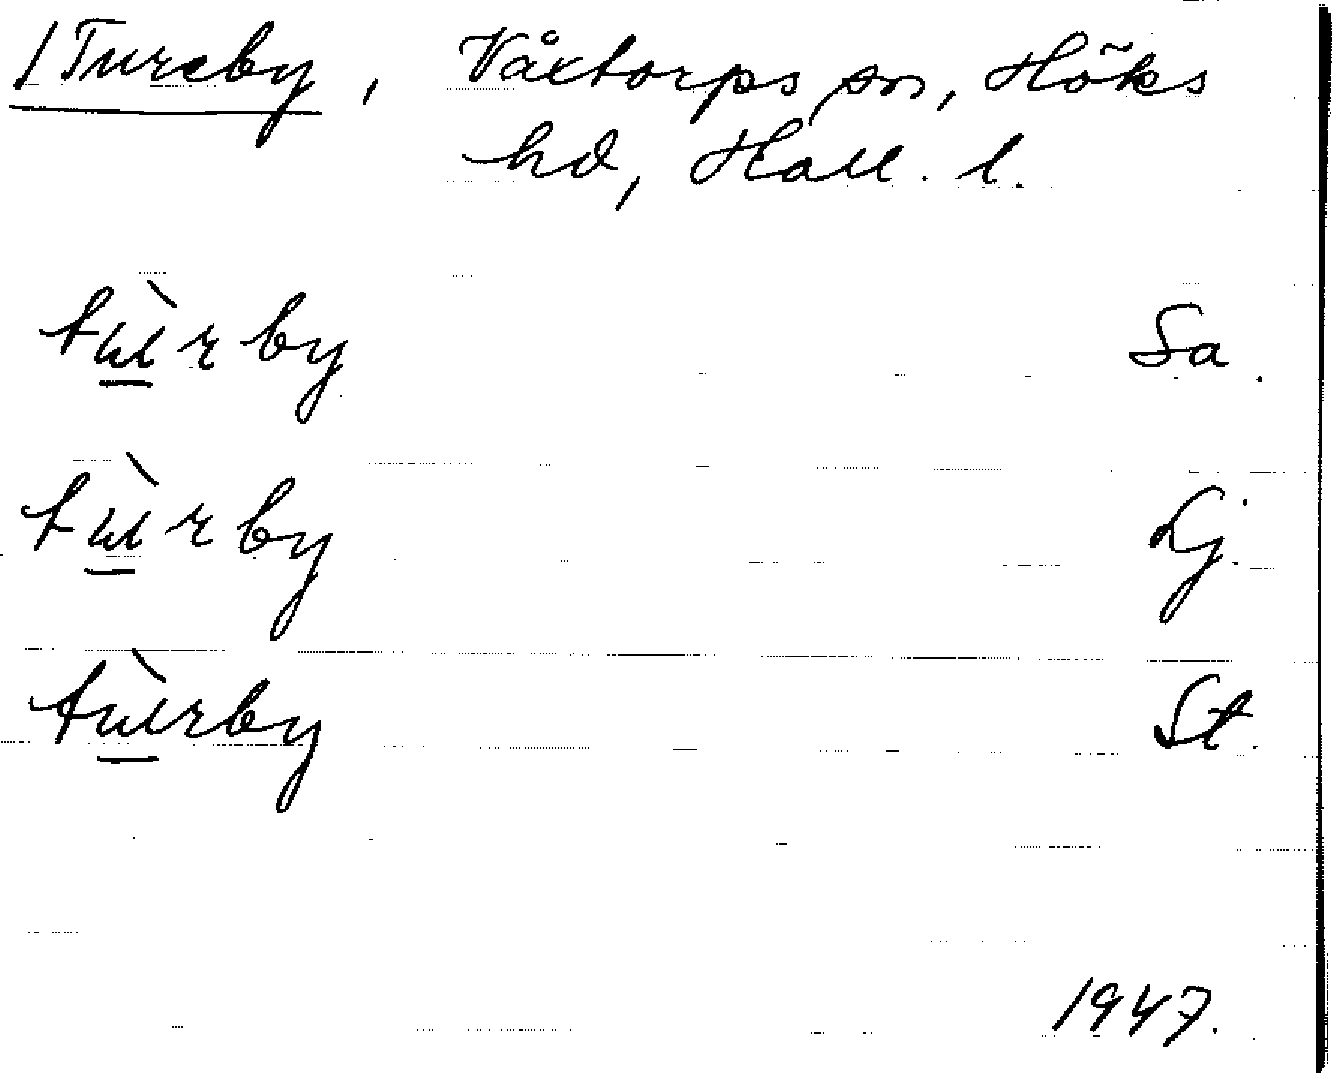 /Tureby, Våxtorps sn, Höks
hd, Hall. l.
tùrby Sa.
tùrby Lj.
tùrby St.
1947.